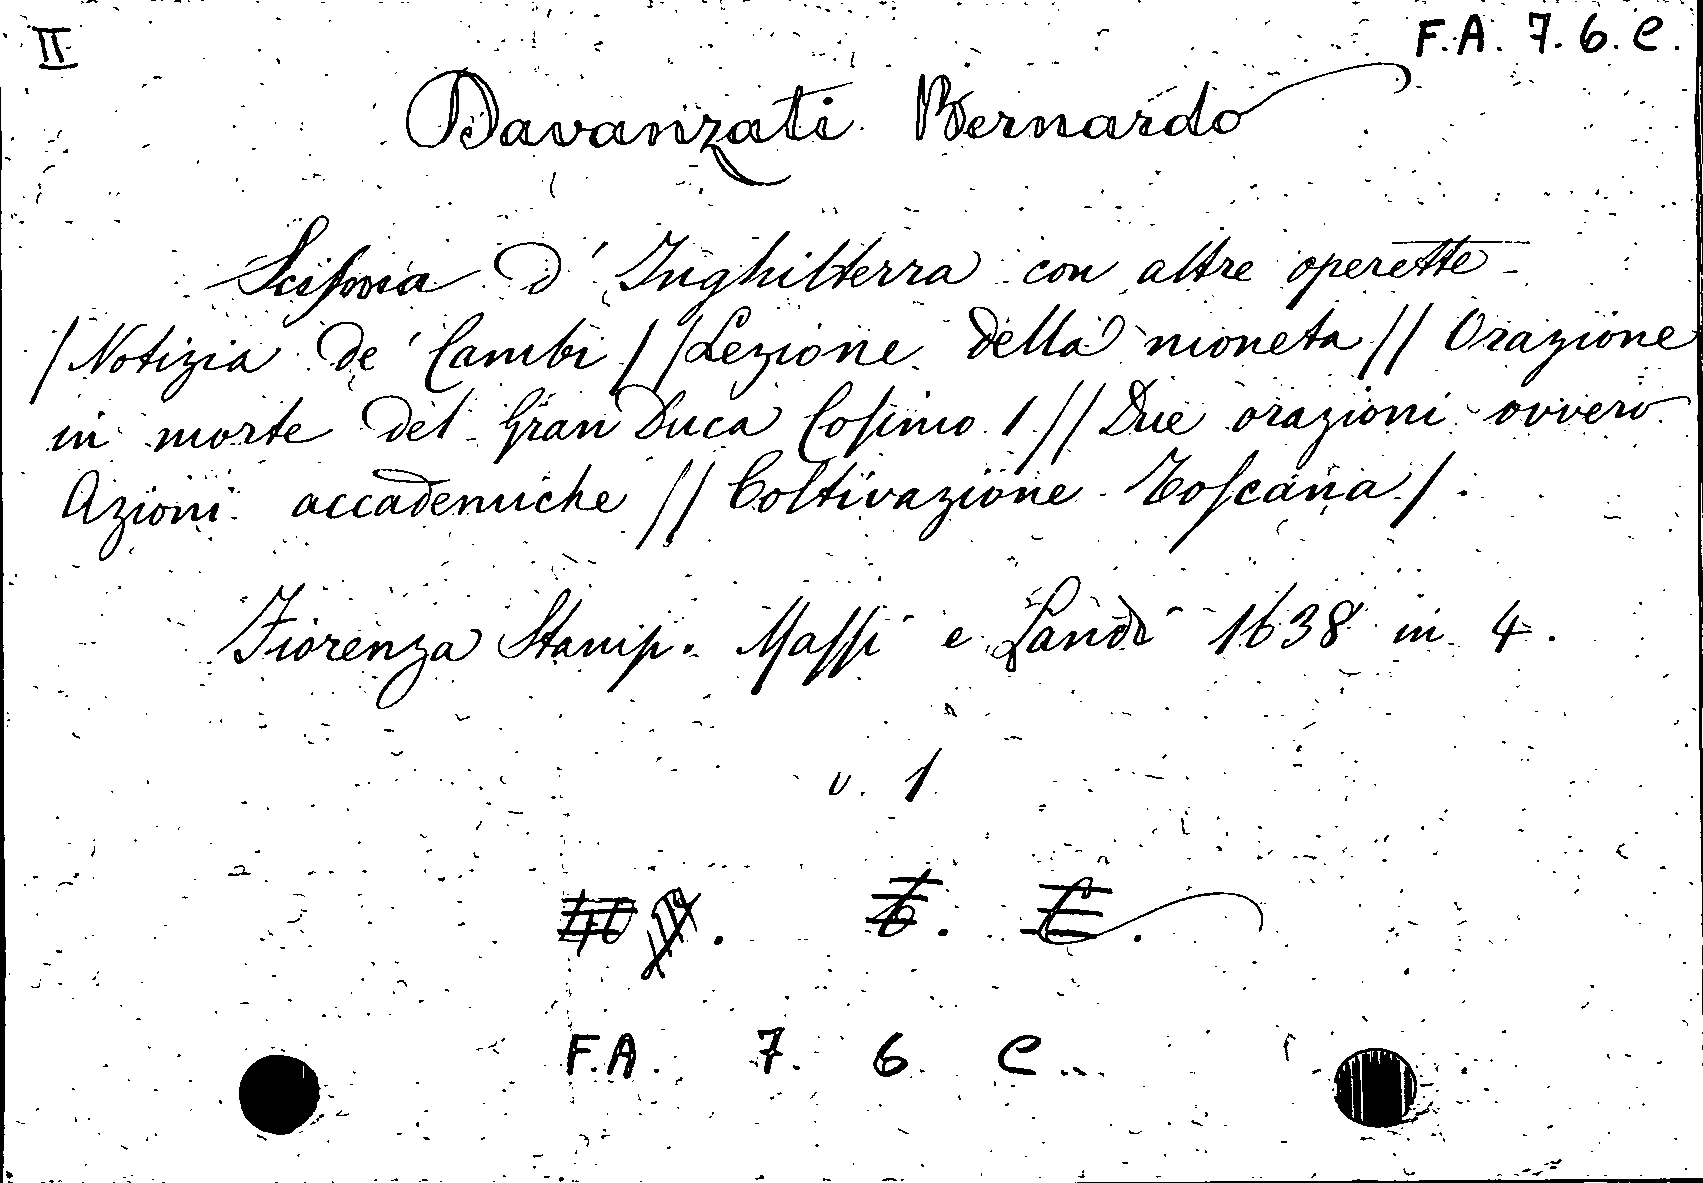 II
F.A. 7. 6. C.
Davanzati Bernardo
Scisma d' Inghilterra con altre operette
/ Notizia de' Cambi / / Lezione della moneta // Orazione
in morte del Gran Duca Cosimo 1 // Due orazioni ovvero
Azioni accademiche // Coltivazione Toscana / .
Fiorenza Stamp. Massi e Landi 1638 in 4.
v. 1
F.A. 7. 6. C.